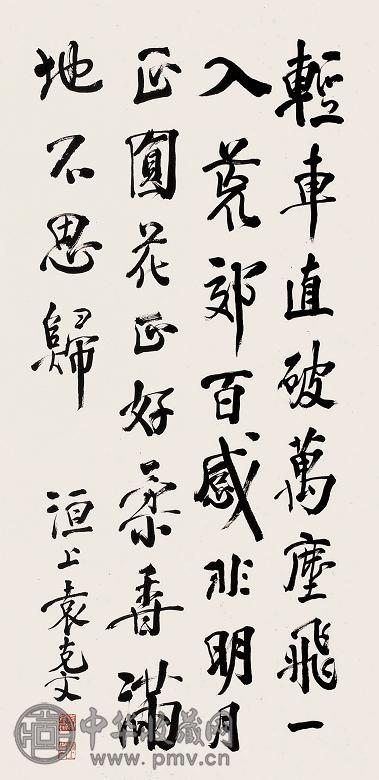 輕車直破萬塵飛一
入荒郊百感非明月
正圓花正好柔香滿
地不思歸
洹上袁克文
中华收藏网
www.pmv.cn